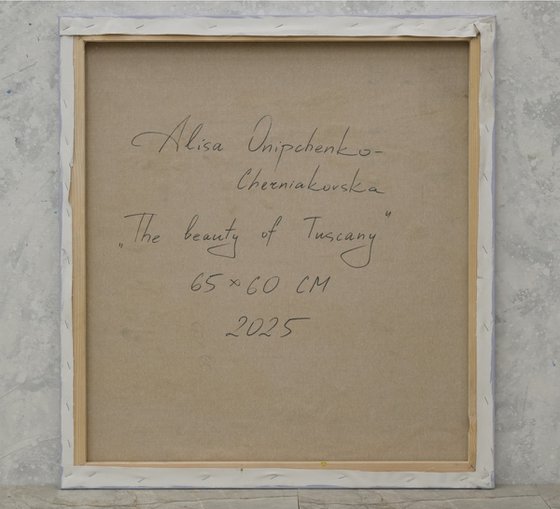 Alisa Onipchenko-
Cherniakovska
„The beauty of Tuscany"
65 × 60 CM
2025